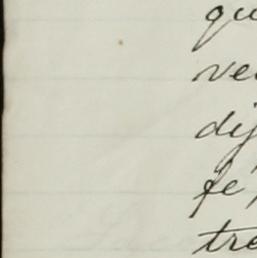 qu
ve
dij
fe,
tre